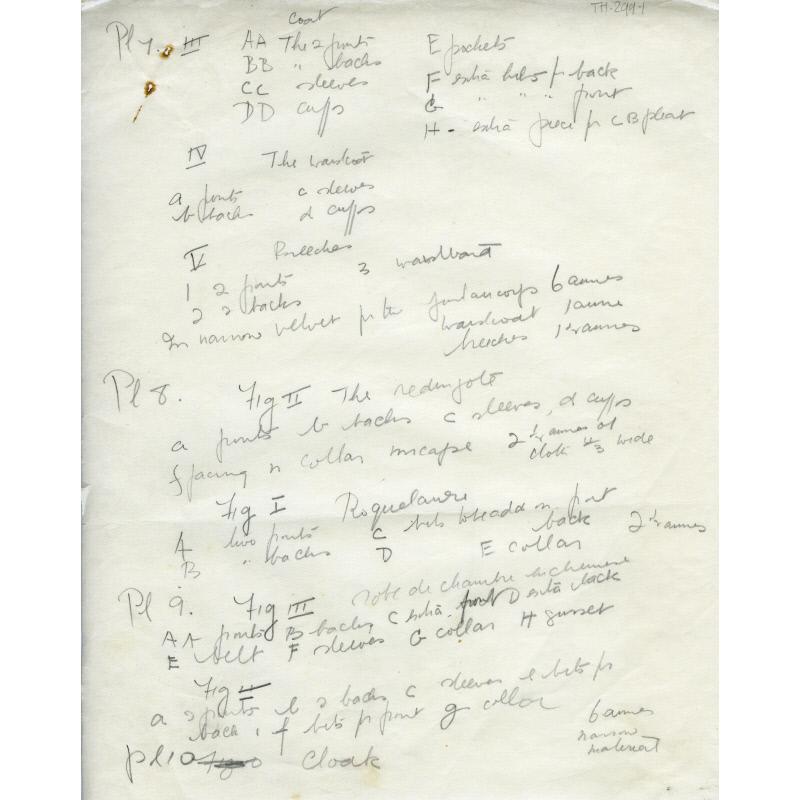 TH-299-1
coat
Pl 7. III AA The 2 fronts E pockets
BB " backs F extra bits fr back
CC sleeves G " " " front
DD cuffs H - extra piece fr CB pleat
IV The waistcoat
a fronts c sleeves
b backs d cuffs
V Breeches
1 2 fronts 3 waistband
2 2 backs
In narrow velvet for the justaucorps 6 aunes
waistcoat 1 aune
breeches 1½ aunes
Pl 8. Fig II The redingote
a fronts b backs c sleeves, d cuffs
f facing n collar m cape 2½ aunes of
cloth 4/3 wide
Fig I Roquelaure
A two fronts C bits to add on front
B " backs D back 2½ aunes
E collar
Pl 9. Fig III robe de chambre en chemise
AA fronts B backs C extra front D extra back
E belt F sleeves G collar H gusset
Fig I
a 2 fronts b 2 backs c sleeves e bits fr
back, f bits fr front g collar
6 aunes
narrow
material
pl 10 Cloak